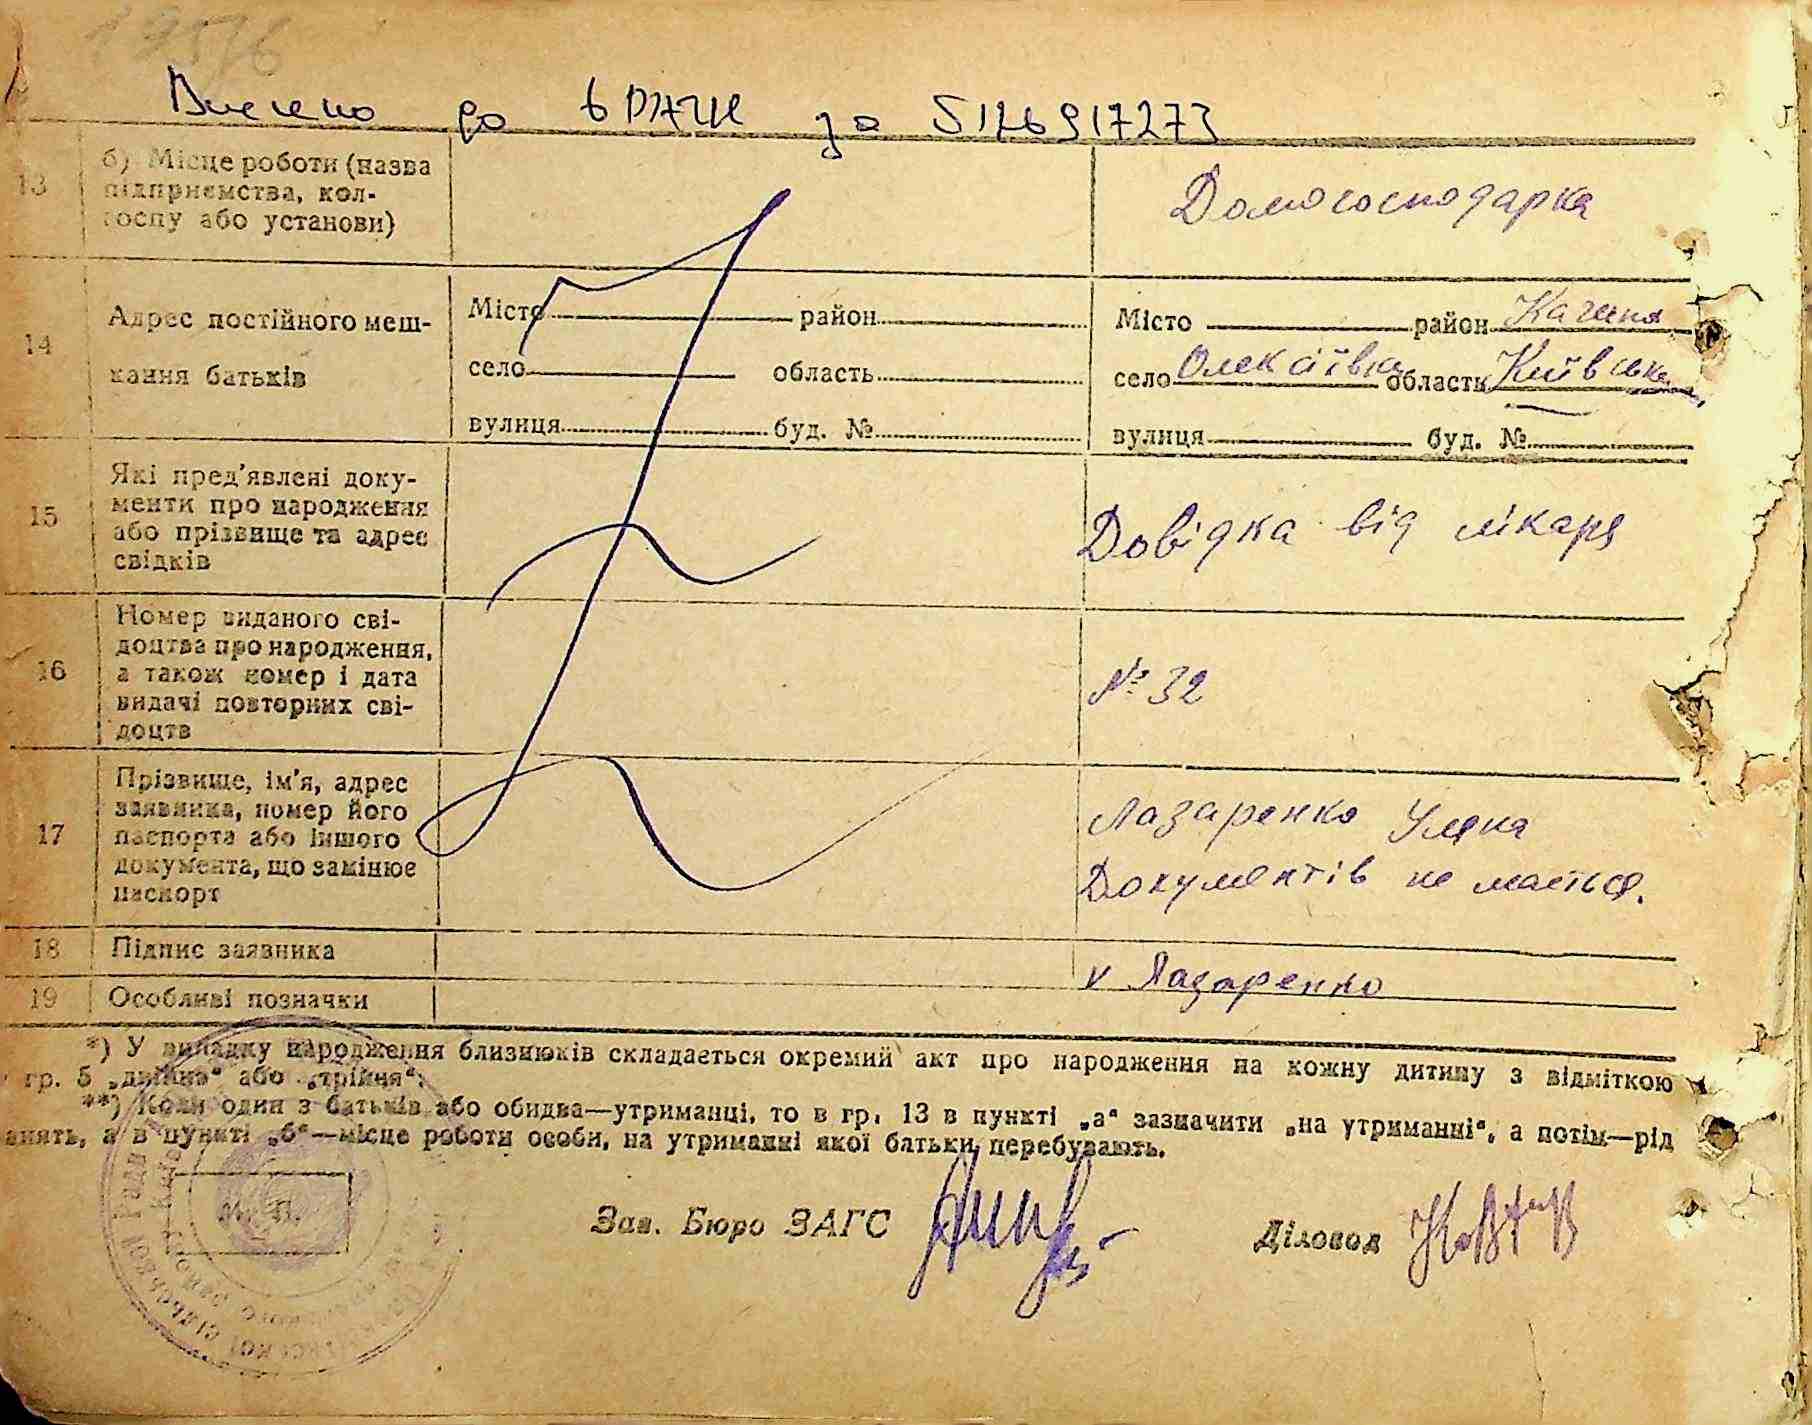 Внесено до ДРАЦС за 5126917273
13
б) Місце роботи (назва
підприємства, кол-
госпу або установи)
Домогосподарка
14
Адрес постійного меш-
кання батьків
Місто район
село область
вулиця буд. №
Місто район
село Олексіївка область Київська
вулиця буд. №
15
Які пред'явлені доку-
менти про народження
або прізвище та адрес
свідків
Довідка від лікаря
16
Номер виданого сві-
доцтва про народження,
а також номер і дата
видачі повторних сві-
доцтв
№ 32
17
Прізвище, ім'я, адрес
заявника, номер його
паспорта або іншого
документа, що замінює
паспорт
Лазаренко Уляна
Документів не мається.
18 Підпис заявника
v Лазаренко
19 Особливі позначки
*) У випадку народження близнюків складається окремий акт про народження на кожну дитину з відміткою
гр. 5 „двійня“ або „трійня“.
**) Коли один з батьків або обидва—утриманці, то в гр. 13 в пункті „а“ зазначити „на утриманні“, а потім—рід
анять, а в пункті „б“—місце роботи особи, на утриманні якої батьки перебувають.
М. П.
Зав. Бюро ЗАГС
Діловод